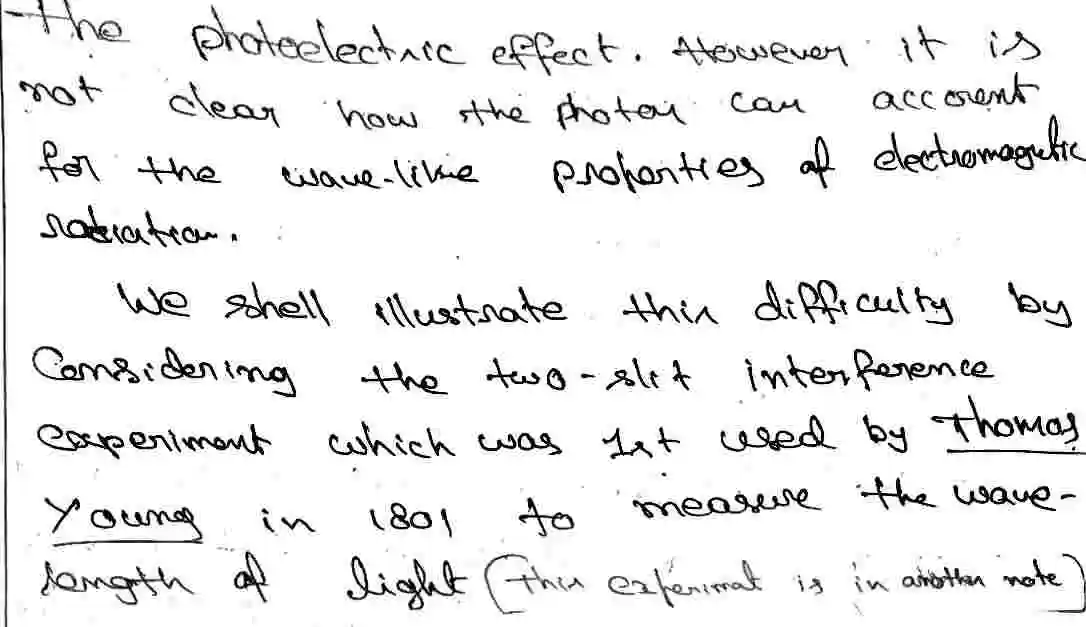 The photoelectric effect. However it is
not clear how the photon can account
for the wave-like properties of electromagnetic
radiation.
We shell illustrate this difficulty by
Considering the two-slit interference
experiment which was 1st used by Thomas
Young in 1801 to measure the wave-
length of light (This experiment is in another note)